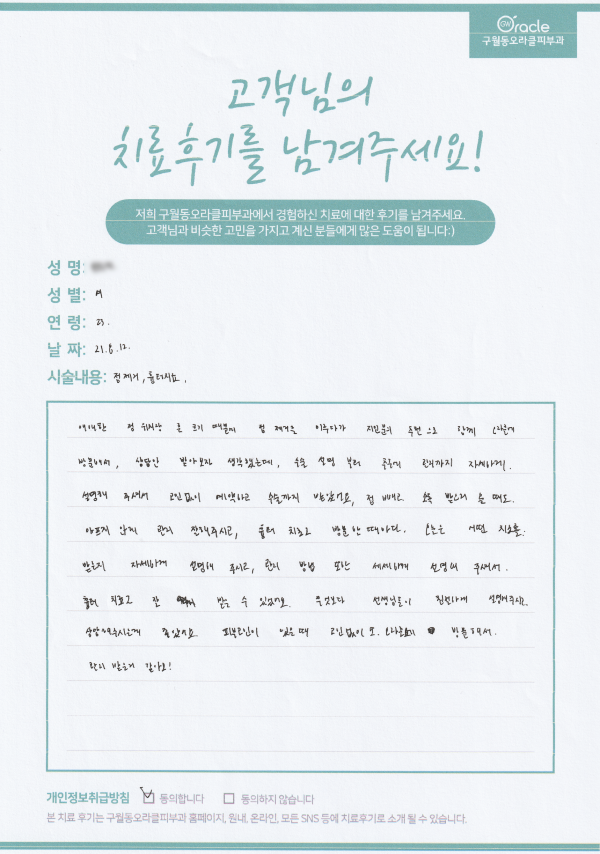 Oracle
구월동오라클피부과
고객님의
치료후기를 남겨주세요!
저희 구월동오라클피부과에서 경험하신 치료에 대한 후기를 남겨주세요.
고객님과 비슷한 고민을 가지고 계신 분들에게 많은 도움이 됩니다:)
성 명:
성 별: 여
연 령: 23.
날 짜: 21.8.12.
시술내용: 점제거,
애매한 점 위치랑 큰 크기 때문에 점 제거를 미루다가 지인분의 추천으로 함께
방문해서, 상담만 받아보자 생각했는데, 수술 설명 부터 추후 관리까지 자세하게.
설명해 주셔서 고민없이 예약하고 수술까지 받았어요, 점 빼고. 받으러 올 때도.
아프지 않게 관리 잘해주시고, 치료 방문한 때마다. 오늘은 어떤 치료를.
받는지 자세하게 설명해 주시고, 관리 방법 또한 세세하게 설명해 주셔서.
치료 잘 받을 수 있었어요. 무엇보다 선생님들이 친절하게 설명해주시고.
상담해주시는게 좋았어요 피부고민이 있을때 고민없이 또. 오라클에 방문해서.
관리 받을거 같아요!
개인정보취급방침 동의합니다 동의하지 않습니다
본 치료 후기는 구월동오라클피부과 홈페이지, 원내, 온라인, 모든 SNS 등에 치료후기로 소개 될 수 있습니다.